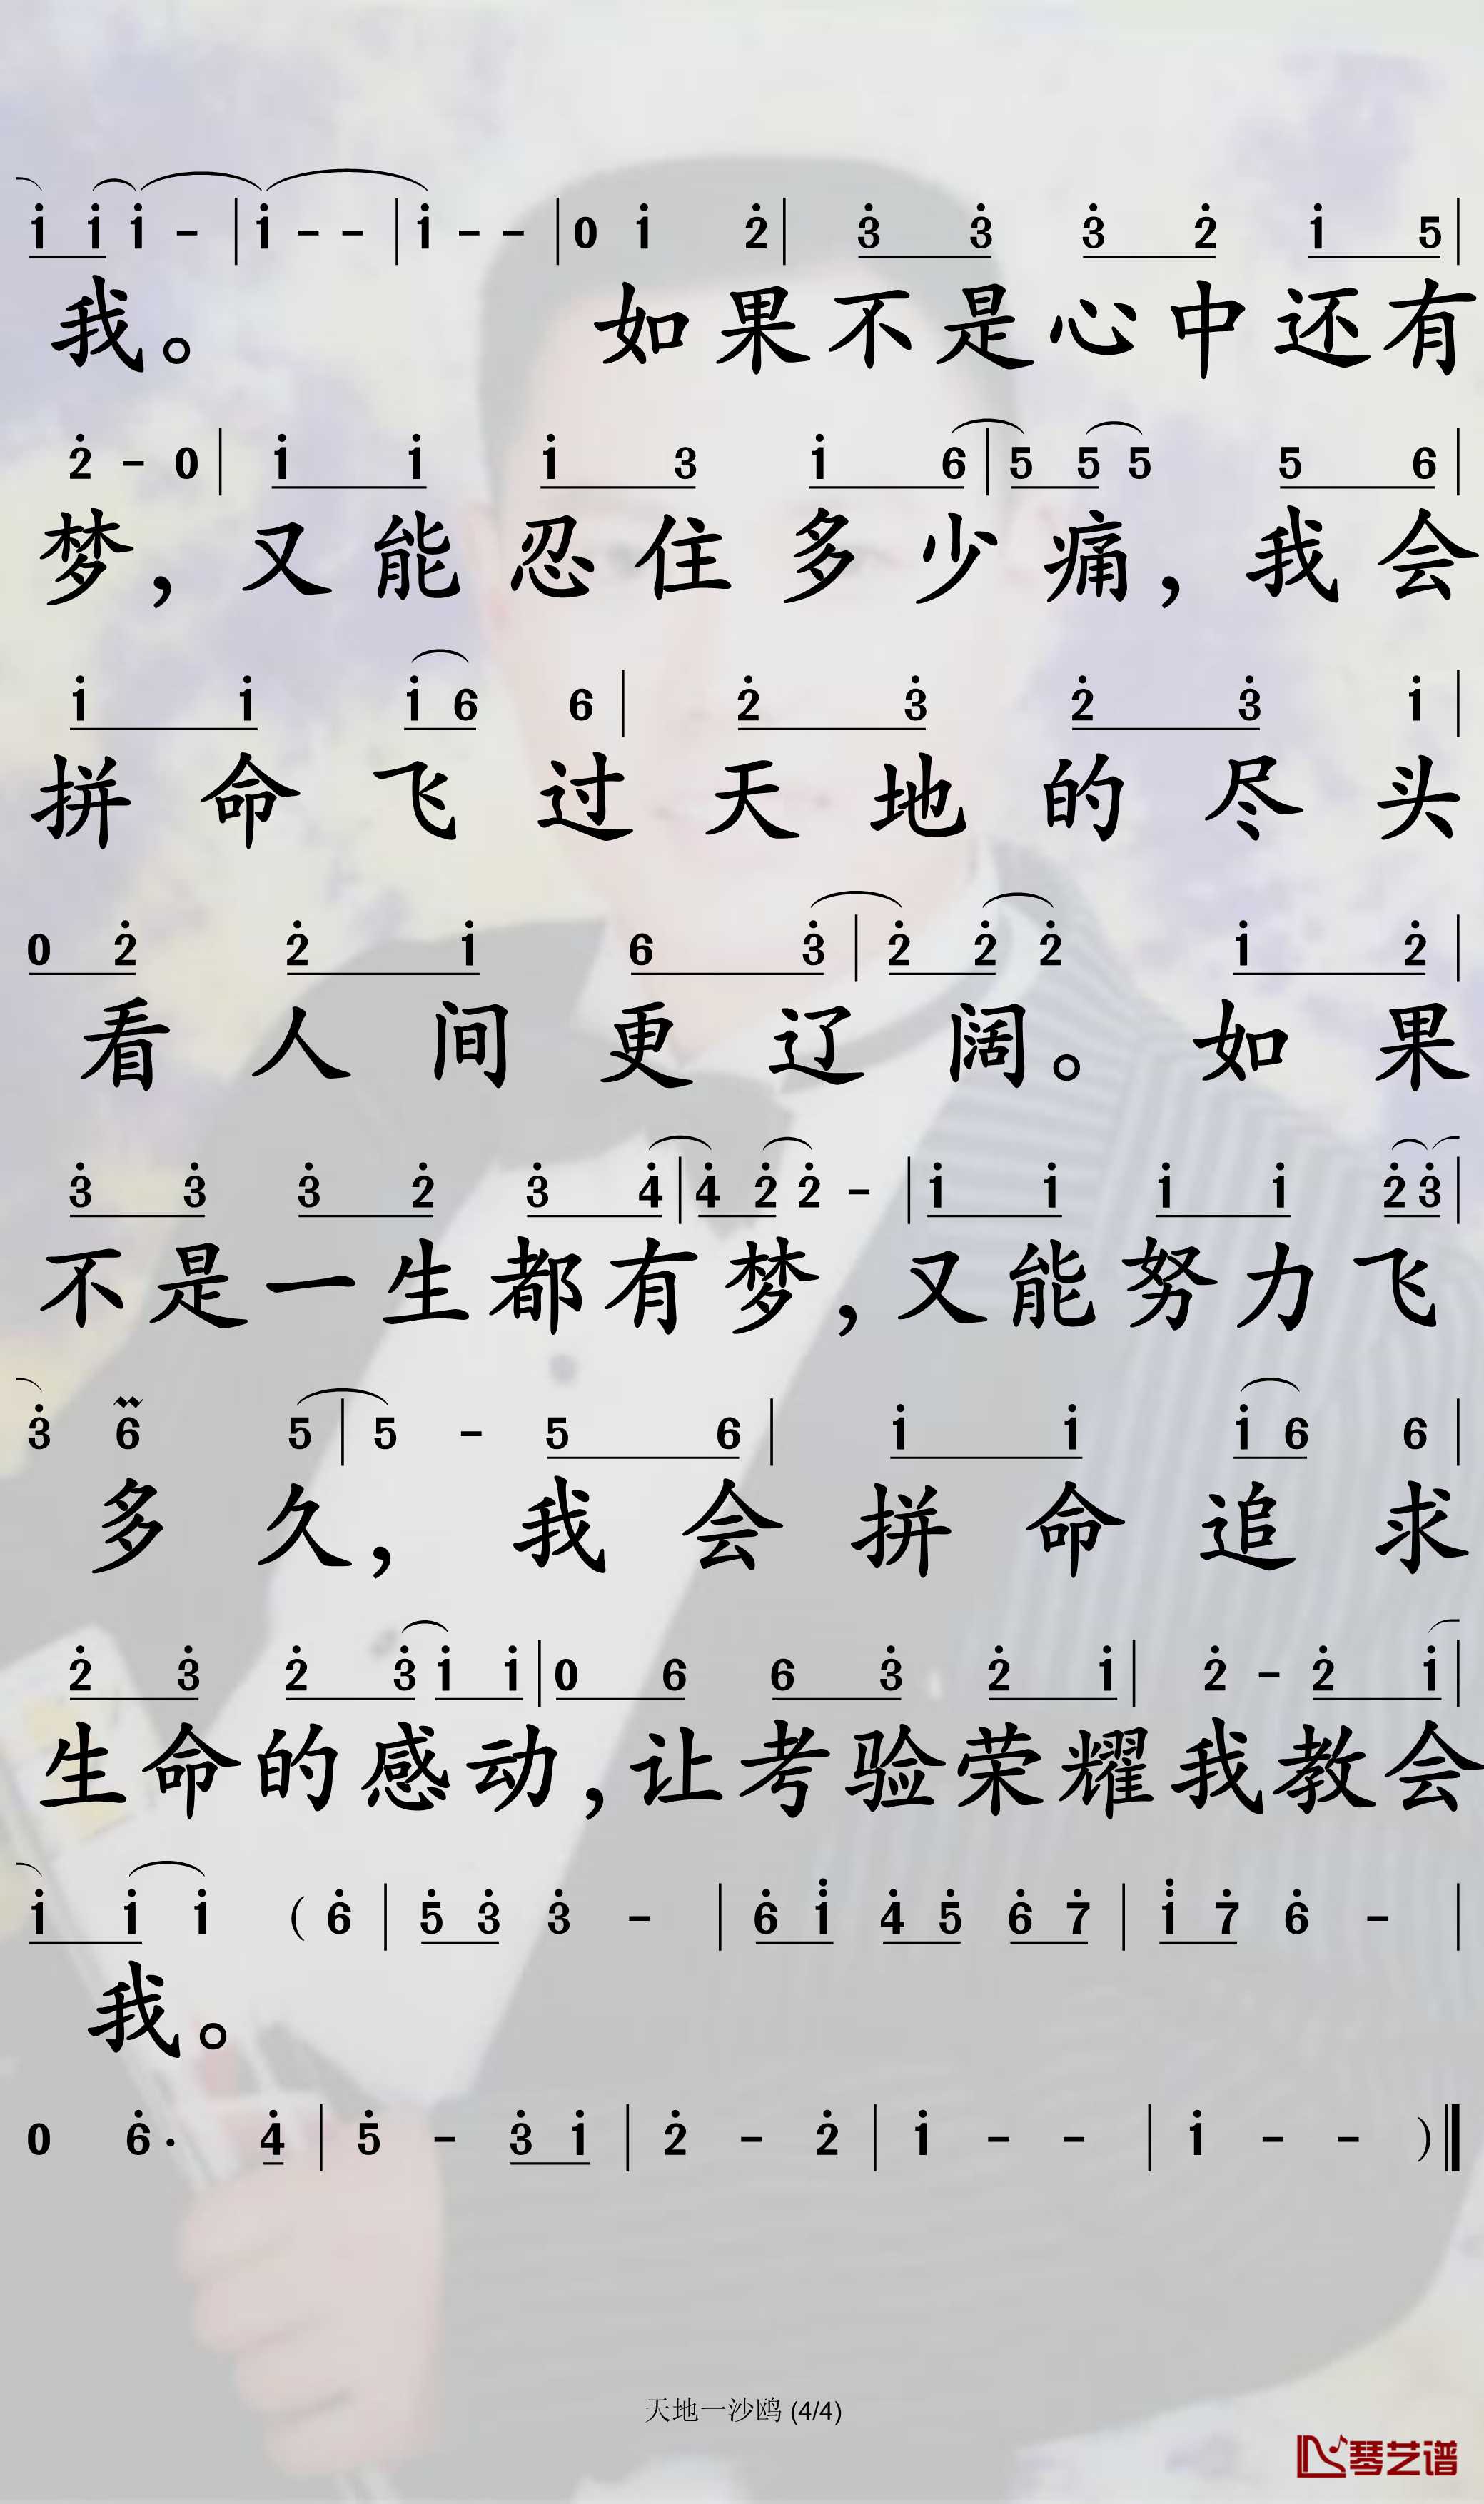 i i i - | i - - | i - - | 0 i 2 | 3 3 3 2 i 5 |
我。 如果不是心中还有
2 - 0 | i i i 3 i 6 | 5 5 5 5 6 |
梦，又能忍住多少痛，我会
i i i 6 6 | 2 3 2 3 i |
拼命飞过天地的尽头
0 2 2 i 6 3 | 2 2 2 i 2 |
看人间更辽阔。如果
3 3 3 2 3 4 | 4 2 2 - | i i i i 2 3 |
不是一生都有梦，又能努力飞
3 6 5 | 5 - 5 6 | i i i 6 6 |
多久，我会拼命追求
2 3 2 3 i i | 0 6 6 3 2 i | 2 - 2 i |
生命的感动，让考验荣耀我教会
i i i (6 | 5 3 3 - | 6 i 4 5 6 7 | i 7 6 - |
我。
0 6· 4 | 5 - 3 i | 2 - 2 | i - - | i - - )‖
天地一沙鸥 (4/4)
琴艺谱